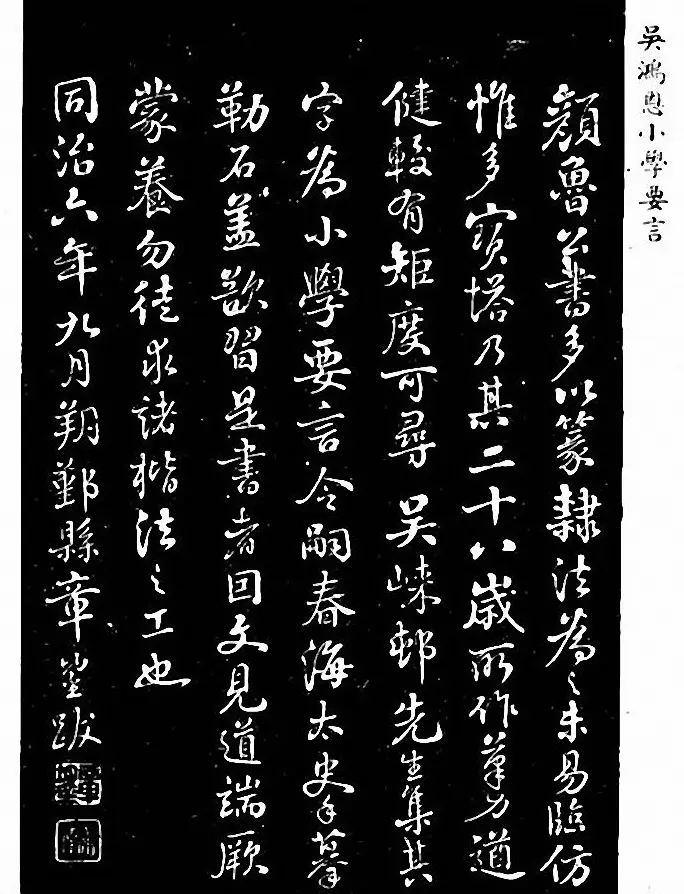 吳鴻恩小學要言
顏魯公書多以篆隸法為之未易臨仿
惟多寶塔乃其二十八歲所作筆力遒
健較有矩度可尋 吳嵊邨先生集其
字為小學要言令嗣春海太史手摹
勒石蓋欲習是書者因文見道端厥
蒙養勿徒求諸楷法之工也
同治六年九月朔鄞縣章鋆跋